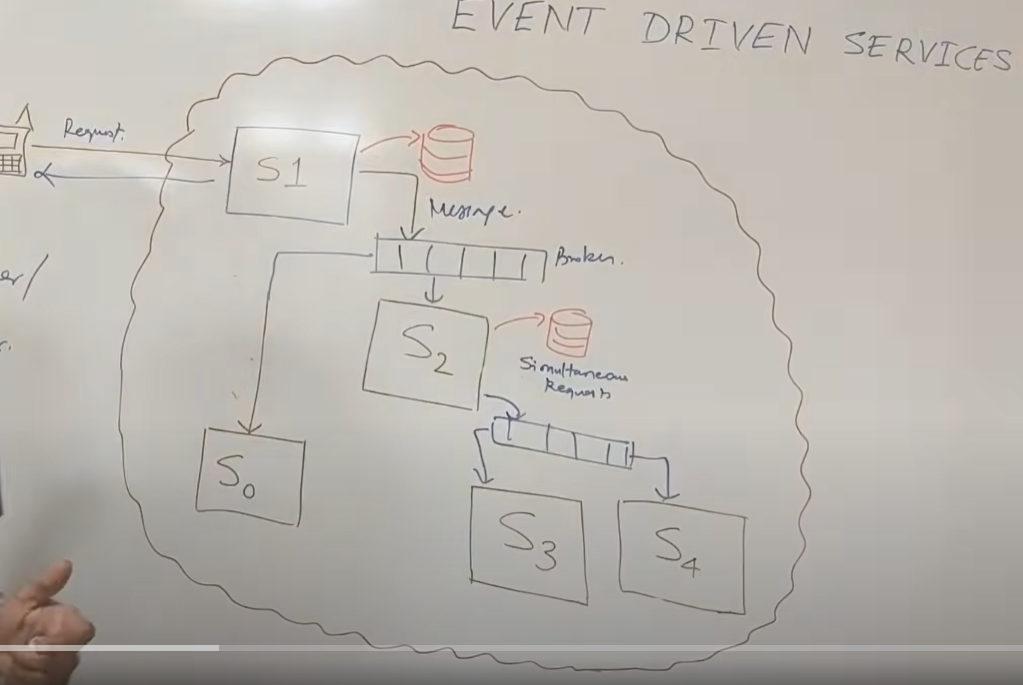 EVENT DRIVEN SERVICES
Request.
S1
Message.
Broker.
S2
Simultaneous
Requests
S0
S3
S4